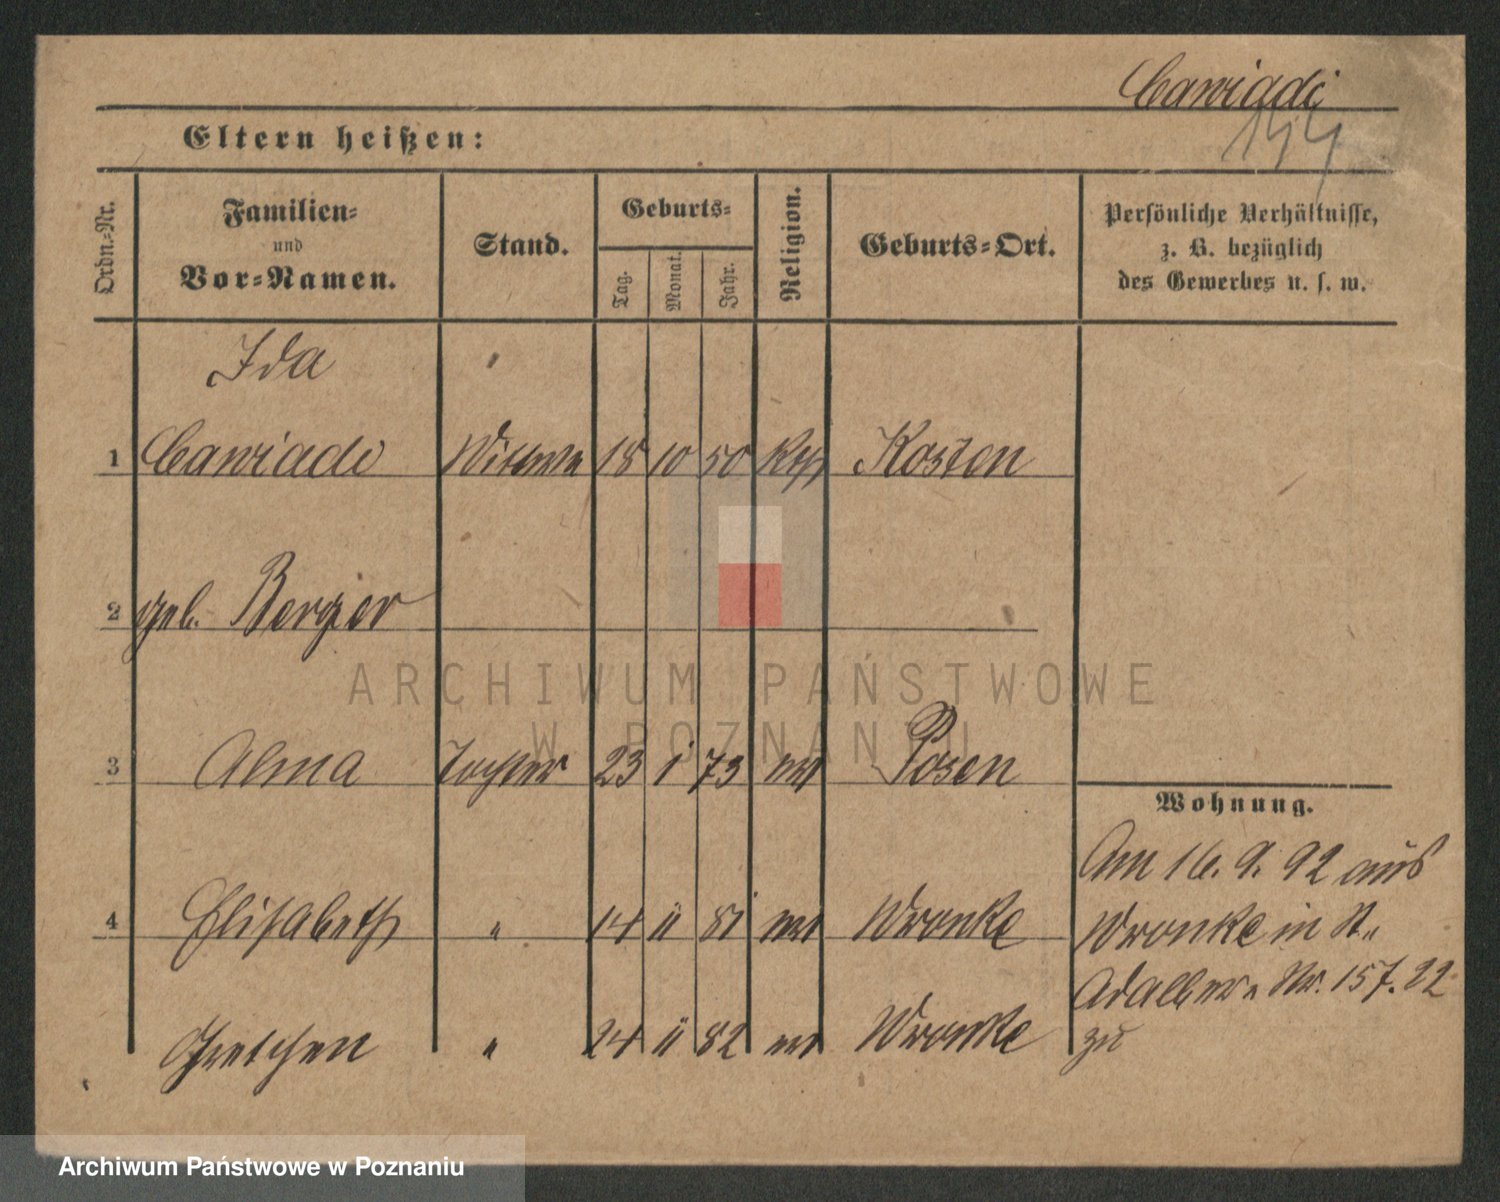 Cawiadi
144
Eltern heißen:
Ordn.-Nr.
Familien-
und
Vor-Namen.
Stand.
Geburts-
Tag.
Monat.
Jahr.
Religion.
Geburts-Ort.
Persönliche Verhältnisse,
z. B. bezüglich
des Gewerbes u. s. w.
Ida
1 Cawiadi Wittwe 18 10 50 Kosten
2 geb. Berger
3 Alma Tochter 23 1 73 Posen
4 Elisabeth " 14 11 81 Wronke
Gretchen " 24 11 82 Wronke
Wohnung.
Am 16. 9. 92 aus
Wronke in St.
Adalber. Nr. 157. 22
zu
ARCHIWUM PAŃSTWOWE
W POZNANIU
Archiwum Państwowe w Poznaniu